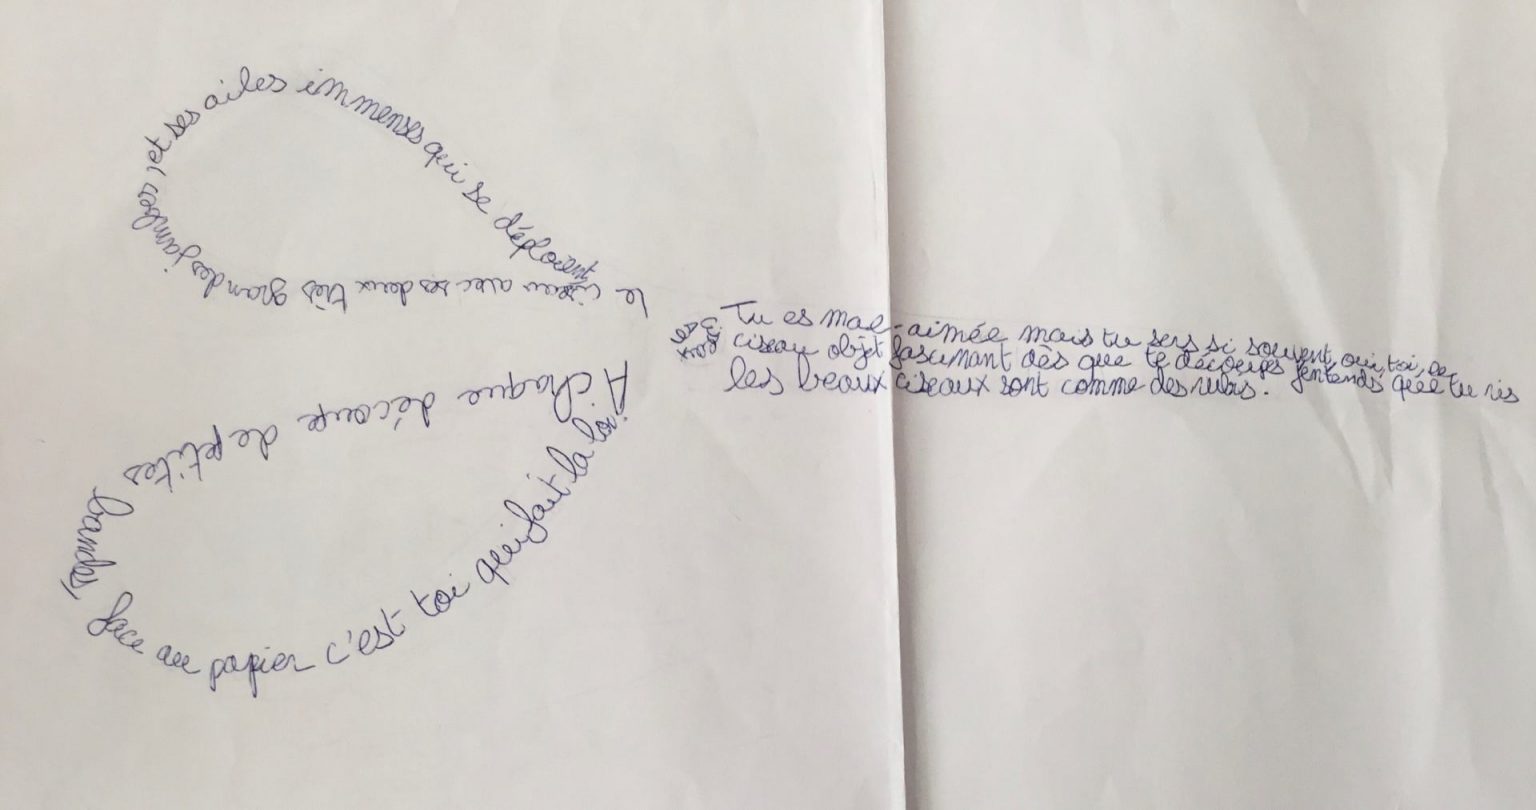 le ciseau avec ses deux très grandes jambes, et ses ailes immenses qui se déploient
A chaque découpe de petites bandes, face au papier c'est toi qui fait la loi.
Tu es mal-aimée mais tu sers si souvent, oui, toi, le
ciseau objet fascinant dès que te découpes j'entends que tu ris
les beaux ciseaux sont comme des